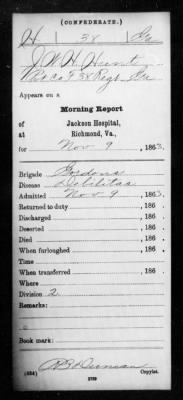 (CONFEDERATE.)
H 38 Ga
J. W. H. Hunt
Co. F 38 Regt. Ga
Appears on a
Morning Report
of Jackson Hospital,
at Richmond, Va.,
for Nov 9, 1863.
Brigade Gordons
Disease Debilitas
Admitted Nov 9, 1863.
Returned to duty , 186 .
Discharged , 186 .
Deserted , 186 .
Died , 186 .
When furloughed , 186 .
Time
When transferred , 186 .
Where
Division 2
Remarks:
Book mark:
R B Duncan
(634) Copyist.